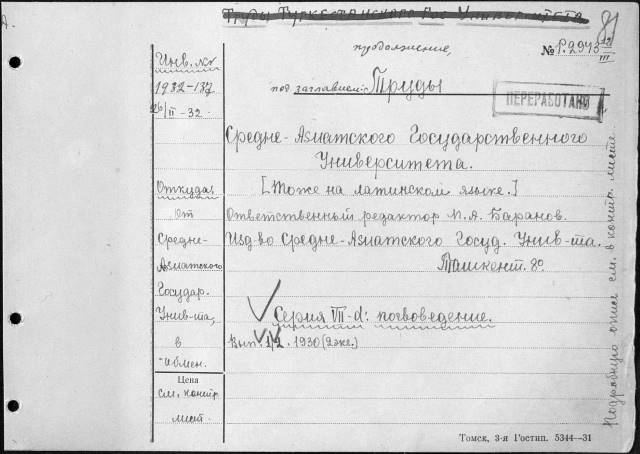 Труды Туркестанского Гос Университета
81
продолжение,
№ Р.2973 12/III
Инв. №
1932-187
26/II-32
под заглавием: Труды
ПЕРЕРАБОТАНО
Средне-Азиатского Государственного
Университета.
Откуда:
[Тоже на латинском языке.]
От
Ответственный редактор М. А. Баранов.
Средне-
Изд-во Средне-Азиатского Госуд. Унив-та.
Азиатского
Ташкент. 8º.
Государ.
Унив-та,
Серия VII-d: почвоведение.
в
Вып. 1/2. 1930 (2 экз.)
обмен.
Цена
см. контр.
лист
Подробную опись см. в контр. листе
Томск, 3-я Гостип. 5344—31